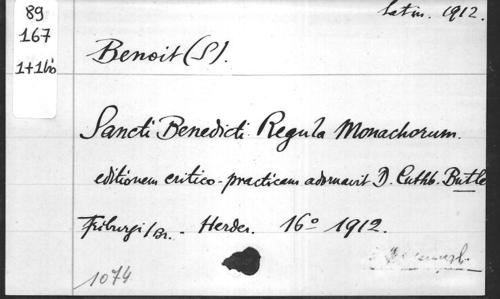 89
167
1+1bis
latin. 1912.
Benoit (S).
Sancti Benedicti Regula Monachorum.
editionem critico-practicam adornavit D. Cuthb. Butle
Friburgi/Br. - Herder. 16º 1912.
1074